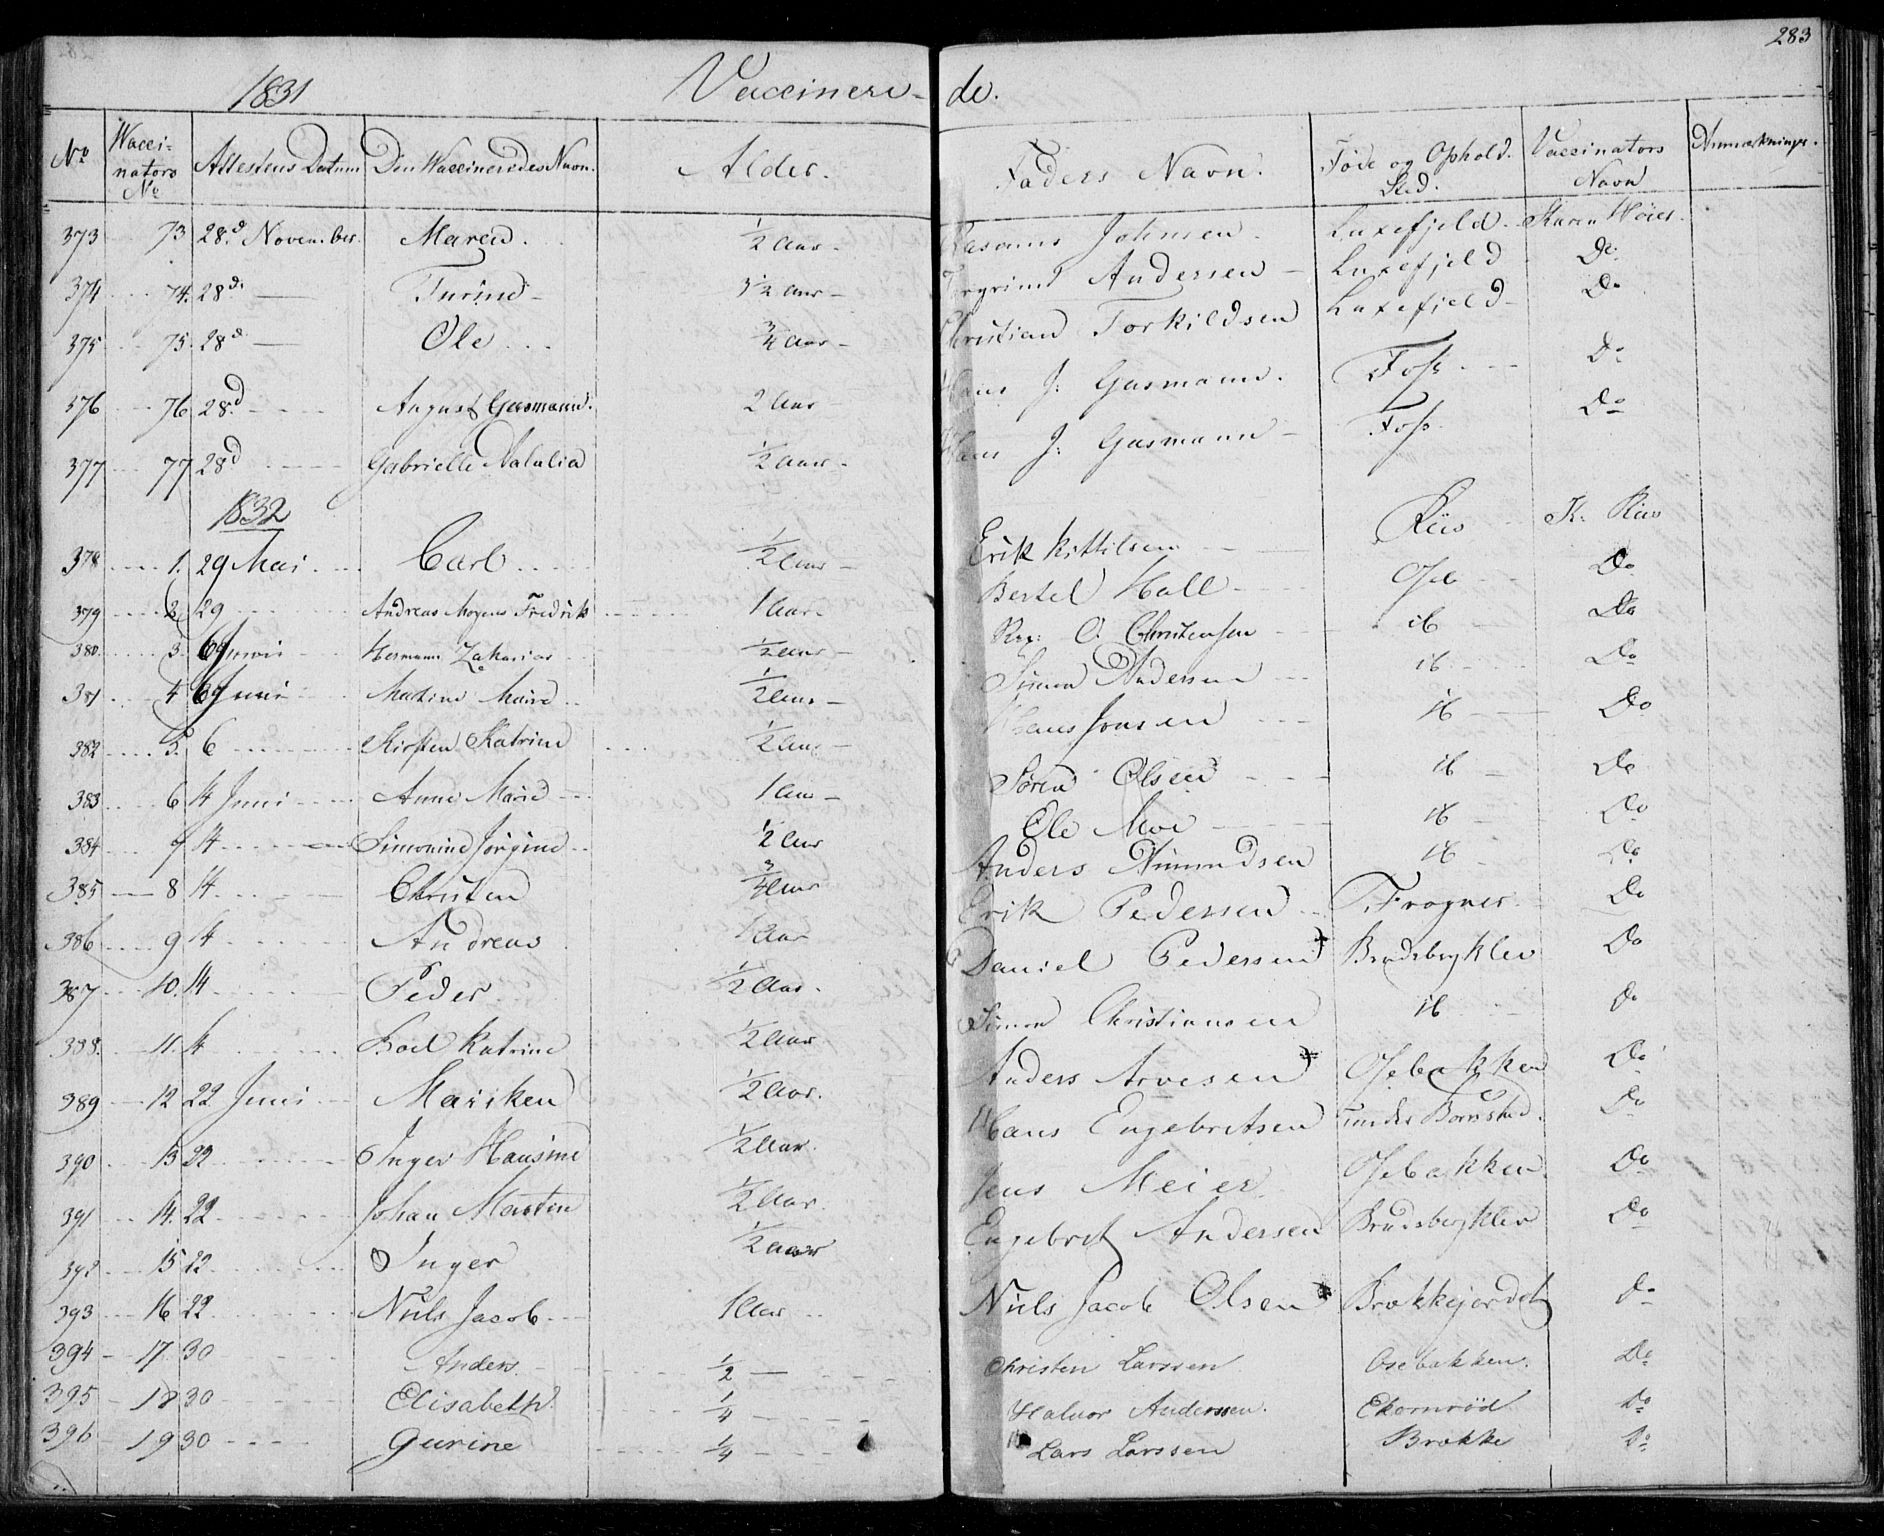 283
1831 Vaccinere- de.
No Vaccinators No Attestens Datum Den Vaccineredes Navn. Alder. Faders Navn. Føde og Ophold. Sted. Vaccinators Navn Anmærkninger.
373 73 28.d November. Maren. 1/2 Aar. Rasmus Johnsen. Luxefjeld. Karen Høier.
374 74. 28d. Turine 3 1/2 Aar Torgrim Andersen Luxefjeld Do.
375 75. 28d. Ole 3/4 Aar Christian Torkildsen Luxefjeld Do
376 76 28.d August Gasmann. 2 Aar Hans J: Gasmann. Foss. Do
377 77 28d Gabrielle Natalia 1/2 Aar. Hans J: Gasmann Foss. Do
1832
378 1. 29 Mai Carl 1/2 Aar Erik Kittilsen Riis K: Riis
379 2. 29 Andreas Mogens Fredrik 1 Aar. Bertel Hall Oseb Do
380. 3. 6 Juni Hermann Zakarias 1/2 Aar O. Christensen ib Do
381 4 6 Juni Martine Marie 1/2 Aar Simon Andersen ib Do
382 5. 6 Kirsten Katrine 1/2 Aar Hans Jonsen ib Do
383 6 14 Juni Anne Marie 1 Aar Søren Olsen ib Do
384 7 14 Simonine Jörgine 1/2 Aar Ole Moe ib Do
385 8 14 Christen 3/4 Aar Anders Amundsen ib Do
386 9 14 Andreas 1 Aar Erik Pedersen T. Frogner Do
387 10. 14 Peder 1/2 Aar. Daniel Pedersen Bradsbergklev Do
388. 11. 14 Boel Katrine 1/2 Aar Simon Christiansen ib Do
389 12 22 Juni Mariken 1/2 Aar. Anders Arvesen Osebakken Do
390 13 22 Inger Hansine 1/2 Aar. Hans Engebretsen under Bornsted. Do
391 14. 22 Johan Martin 1/2 Aar. Jens Meier Osebakken. Do
392 15 22 Inger 1/2 Aar Engebret Andersen Bradsbergklev Do
393 16 22 Niels Jacob 1 Aar Niels Jacob Olsen Brækkejordet Do
394 17 30 Anders. 1/2 Christen Larssen Osebakken. Do
395 18 30 Elisabeth. 1/4 Halvor Anderssen. Ekornröd Do
396 19 30 Gurine 1/4 Lars Larssen Brække Do